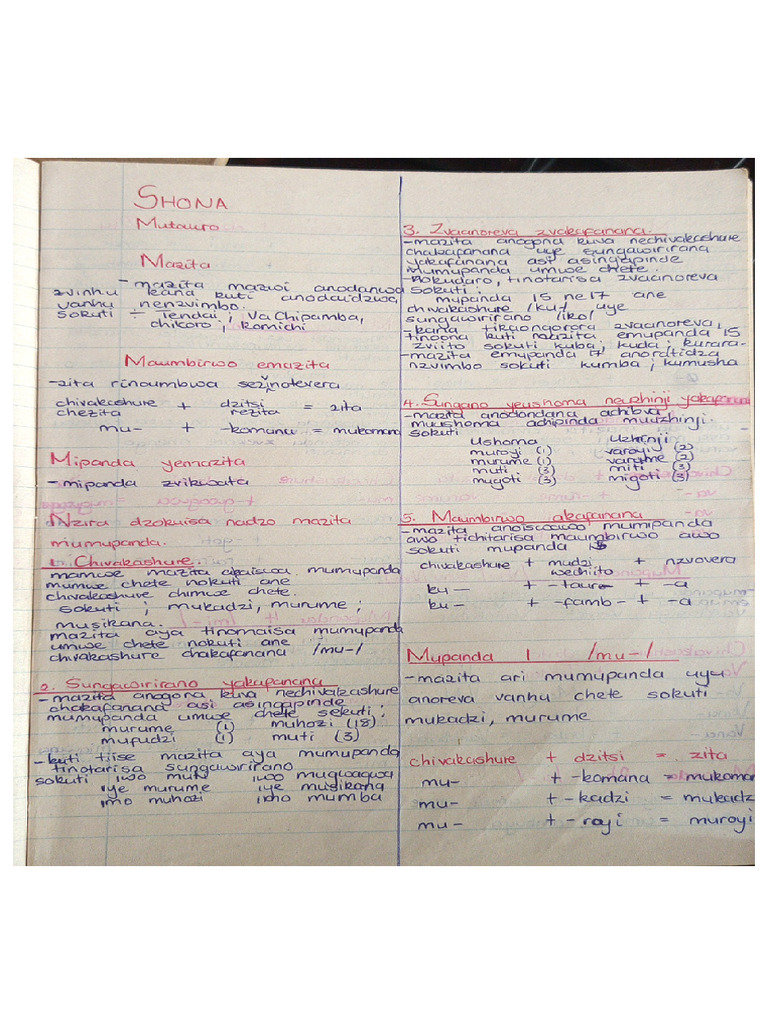 SHONA
Mutauro
Mazita
- mazita mazwi anodanwa
zvinhu kana kuti anodaidzwa
vanhu nenzvimbo.
sokuti ÷ Tendai ; Va Chipamba,
chikoro ; komichi
Maumbirwo emazita
- zita rinoumbwa sezvinotevera
chivakashure + dzitsi = zita
chezita rezita
mu- + -komana = mukomana
Mipanda yemazita
- mipanda zvikwata
Nzira dzokuisa nadzo mazita
mumupanda.
1. Chivakashure.
mamwe mazita akaiswa mumupanda
mumwe chete nokuti ane
chivakashure chimwe chete.
sokuti ; mukadzi, murume ;
musikana.
mazita aya tinomaisa mumupanda
umwe chete nokuti ane
chivakashure chakafanana /mu-/
2. Sungawirirano yakafanana
- mazita anogona kuva nechivakashure
chakafanana asi asingapinde
mumupanda umwe chete sekuti;
murume (1) muhozi (18)
mufudzi (1) muti (3)
- kuti tiise mazita aya mumupanda
tinotarisa sungawirirano
sokuti iwo muti iwo mugwagwa
iye murume iye musikana
imo muhozi imo mumba
3. Zvaanoreva zvakafanana.
- mazita anogona kuva nechivakashure
chakafanana uye sungawirirana
yakafanana asi asingapinde
mumupanda umwe chete.
- Pokudaro, tinotarisa zvaanoreva
sokuti:
mupanda 15 ne 17 ane
chivakashure /ku/ uye
sungawirirano /iko/
- kana tikaongorora zvaanoreva,
tinoona kuti mazita emupanda 15
zviito sokuti kuba, kuda; kurara-
- mazita emupanda 17 anoratidza
nzvimbo sokuti kumba ; kumusha
4. Sungano yeushoma neuzhinji yakafana
- mazita anodondana achibva
muushoma achipinda muuzhinji.
sokuti
Ushoma Uzhinji
muroyi (1) varoyi (2)
murume (1) varume (2)
muti (3) miti (3)
mugoti (3) migoti (3)
5. Maumbirwo akafanana
- mazita anoiswawo mumipanda
awo tichitarisa maumbirwo awo
sokuti mupanda 15
chivakashure + mudzi + nzvovera
wechiito
ku- + -taur- + -a
ku- + -famb- + -a
Mupanda 1 /mu-/
- mazita ari mumupanda uyu
anoreva vanhu chete sokuti
mukadzi, murume
chivakashure + dzitsi = zita
mu- + -komana = mukoman
mu- + -kadzi = mukadz
mu- + -royi = muroyi